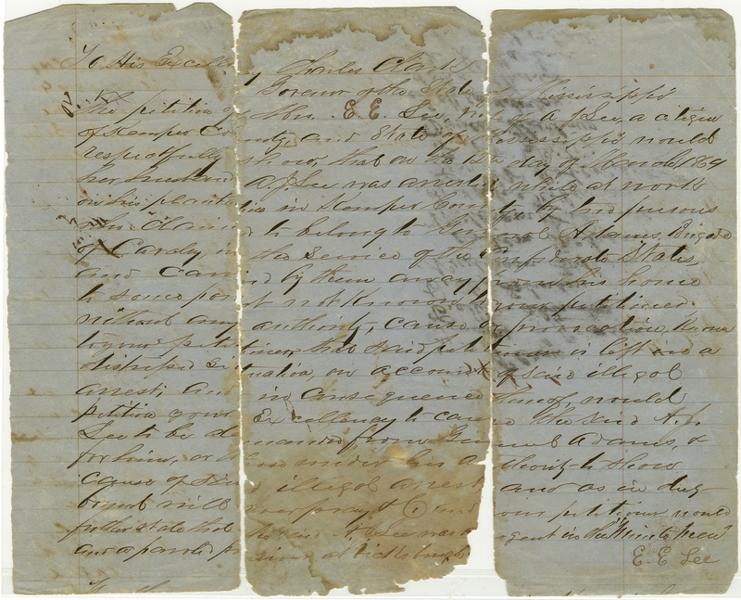 To His Excellency Charles Clark
Governor of the State of Mississippi
The petition of Mrs. E. E. Lee, wife of A J Lee, a citizen
of Kemper County, and State of Mississippi would
respectfully show, that on the day of March 1864
her husband A. J Lee was arrested while at work
on his plantation in Kemper County by two persons
who claimed to belong to General Adams, Brigade
of Cavalry in the service of the Confederate States,
and carried by them away from his home
to some part not known to your petitioner
without any authority, cause or provocation, known
to your petitioner, that said petitioner is left in a
distressed situation, on account of said illegal
arrest and in consequence thereof would
petition your Excellency to cause the said A. J.
Lee to be demanded from General Adams, &
for him, or those under his authority to show
cause of said illegal arrest and as in duty
bound will ever pray &c and your petitioner would
further state that the said A. J Lee was a agent in the
and a parold prisoner at Vicksburg
E. E Lee